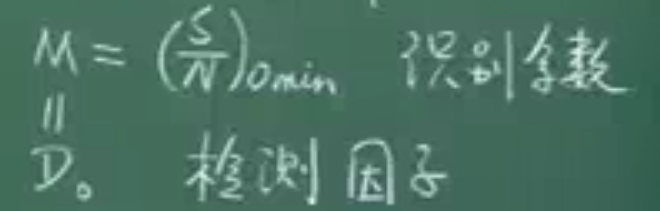 M = (S/N)omin 识别系数
||
D。 检测因子